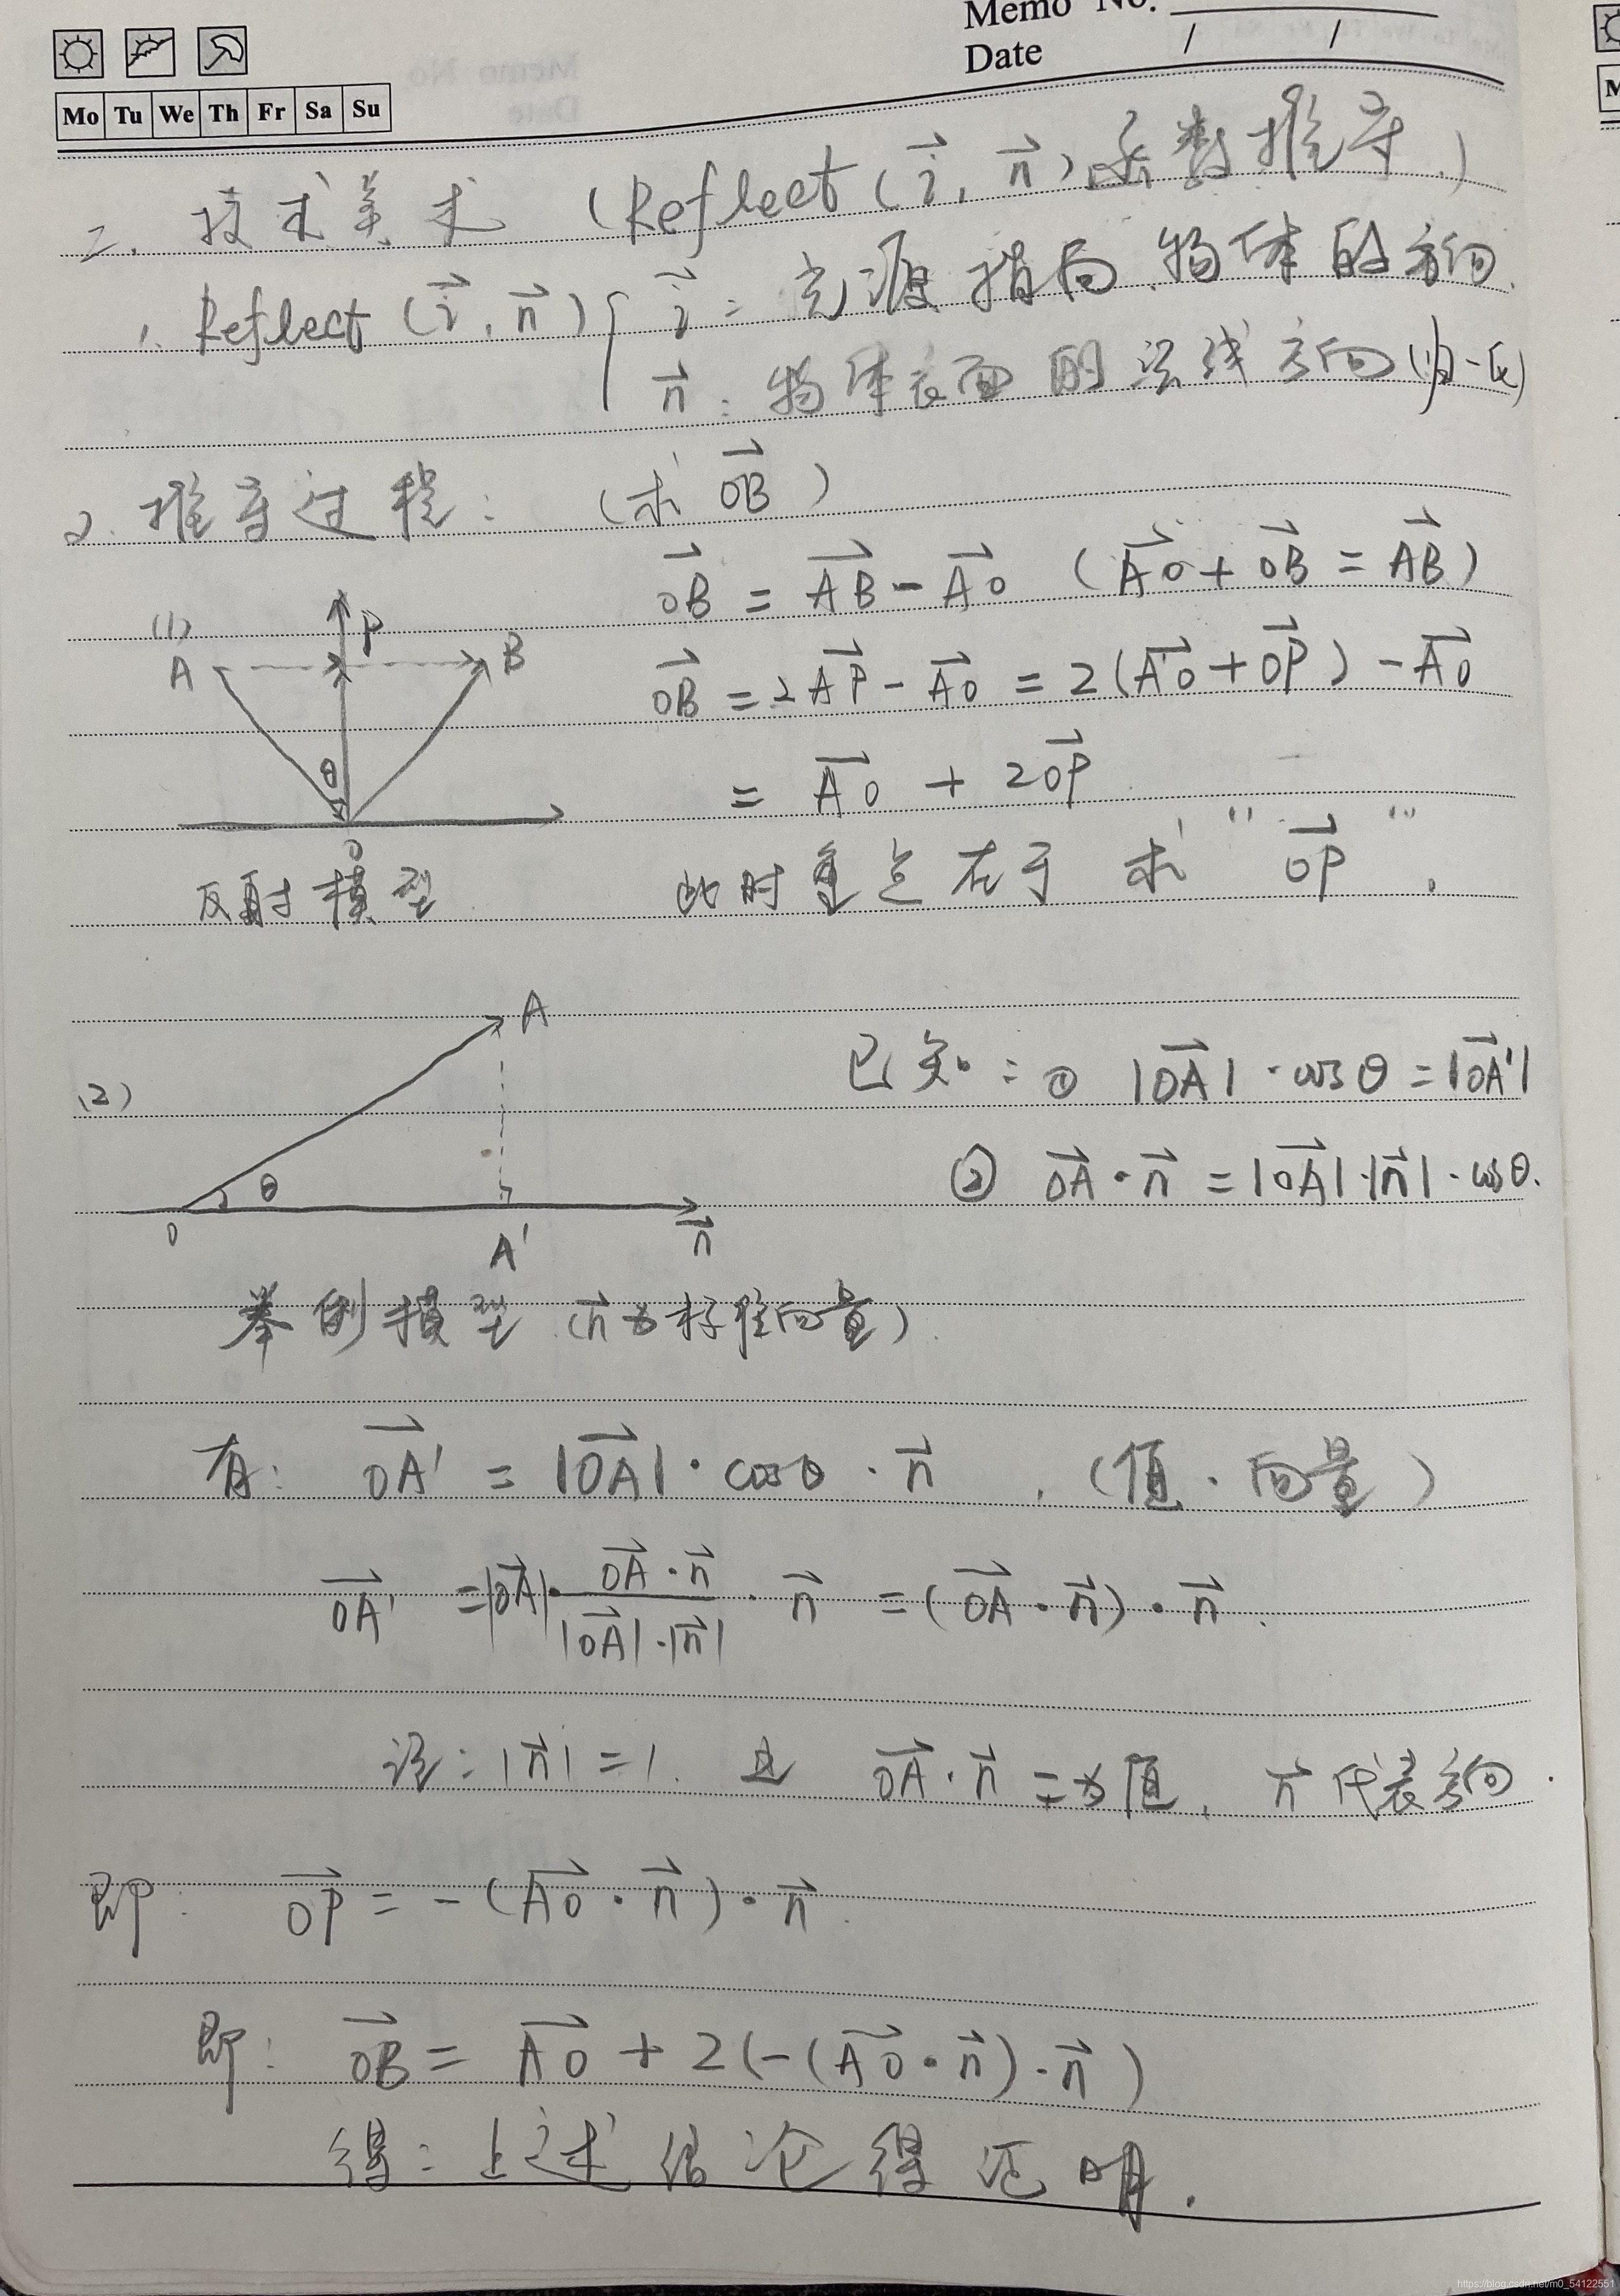 Memo No.
Date / /
Mo Tu We Th Fr Sa Su
二. 技术美术 (Reflect(i⃗, n⃗)函数推导.)
1. Reflect (i⃗, n⃗) { i⃗: 光源指向物体的方向.
n⃗: 物体表面的法线方向(归一化)
2. 推导过程: (求 OB⃗)
OB⃗ = AB⃗ - AO⃗ (AO⃗ + OB⃗ = AB⃗)
(1)
A P B
OB⃗ = 2AP⃗ - AO⃗ = 2(AO⃗ + OP⃗) - AO⃗
θ
= AO⃗ + 2OP⃗
O
反射模型 此时重点在于求 "OP⃗".
A
(2)
已知: ① |OA⃗|·cosθ = |OA'⃗|
② OA⃗·n⃗ = |OA⃗|·|n⃗|·cosθ.
O θ A' n⃗
举例模型 (n⃗为标准向量).
有: OA'⃗ = |OA⃗|·cosθ·n⃗. (值·向量)
OA'⃗ = |OA⃗|·(OA⃗·n⃗)/(|OA⃗|·|n⃗|)·n⃗ = (OA⃗·n⃗)·n⃗.
注: |n⃗| = 1. 且 OA⃗·n⃗ = 为值, n⃗代表方向.
即: OP⃗ = -(AO⃗·n⃗)·n⃗.
即: OB⃗ = AO⃗ + 2(-(AO⃗·n⃗)·n⃗)
得: 上述结论得证明.
https://blog.csdn.net/m0_54122551